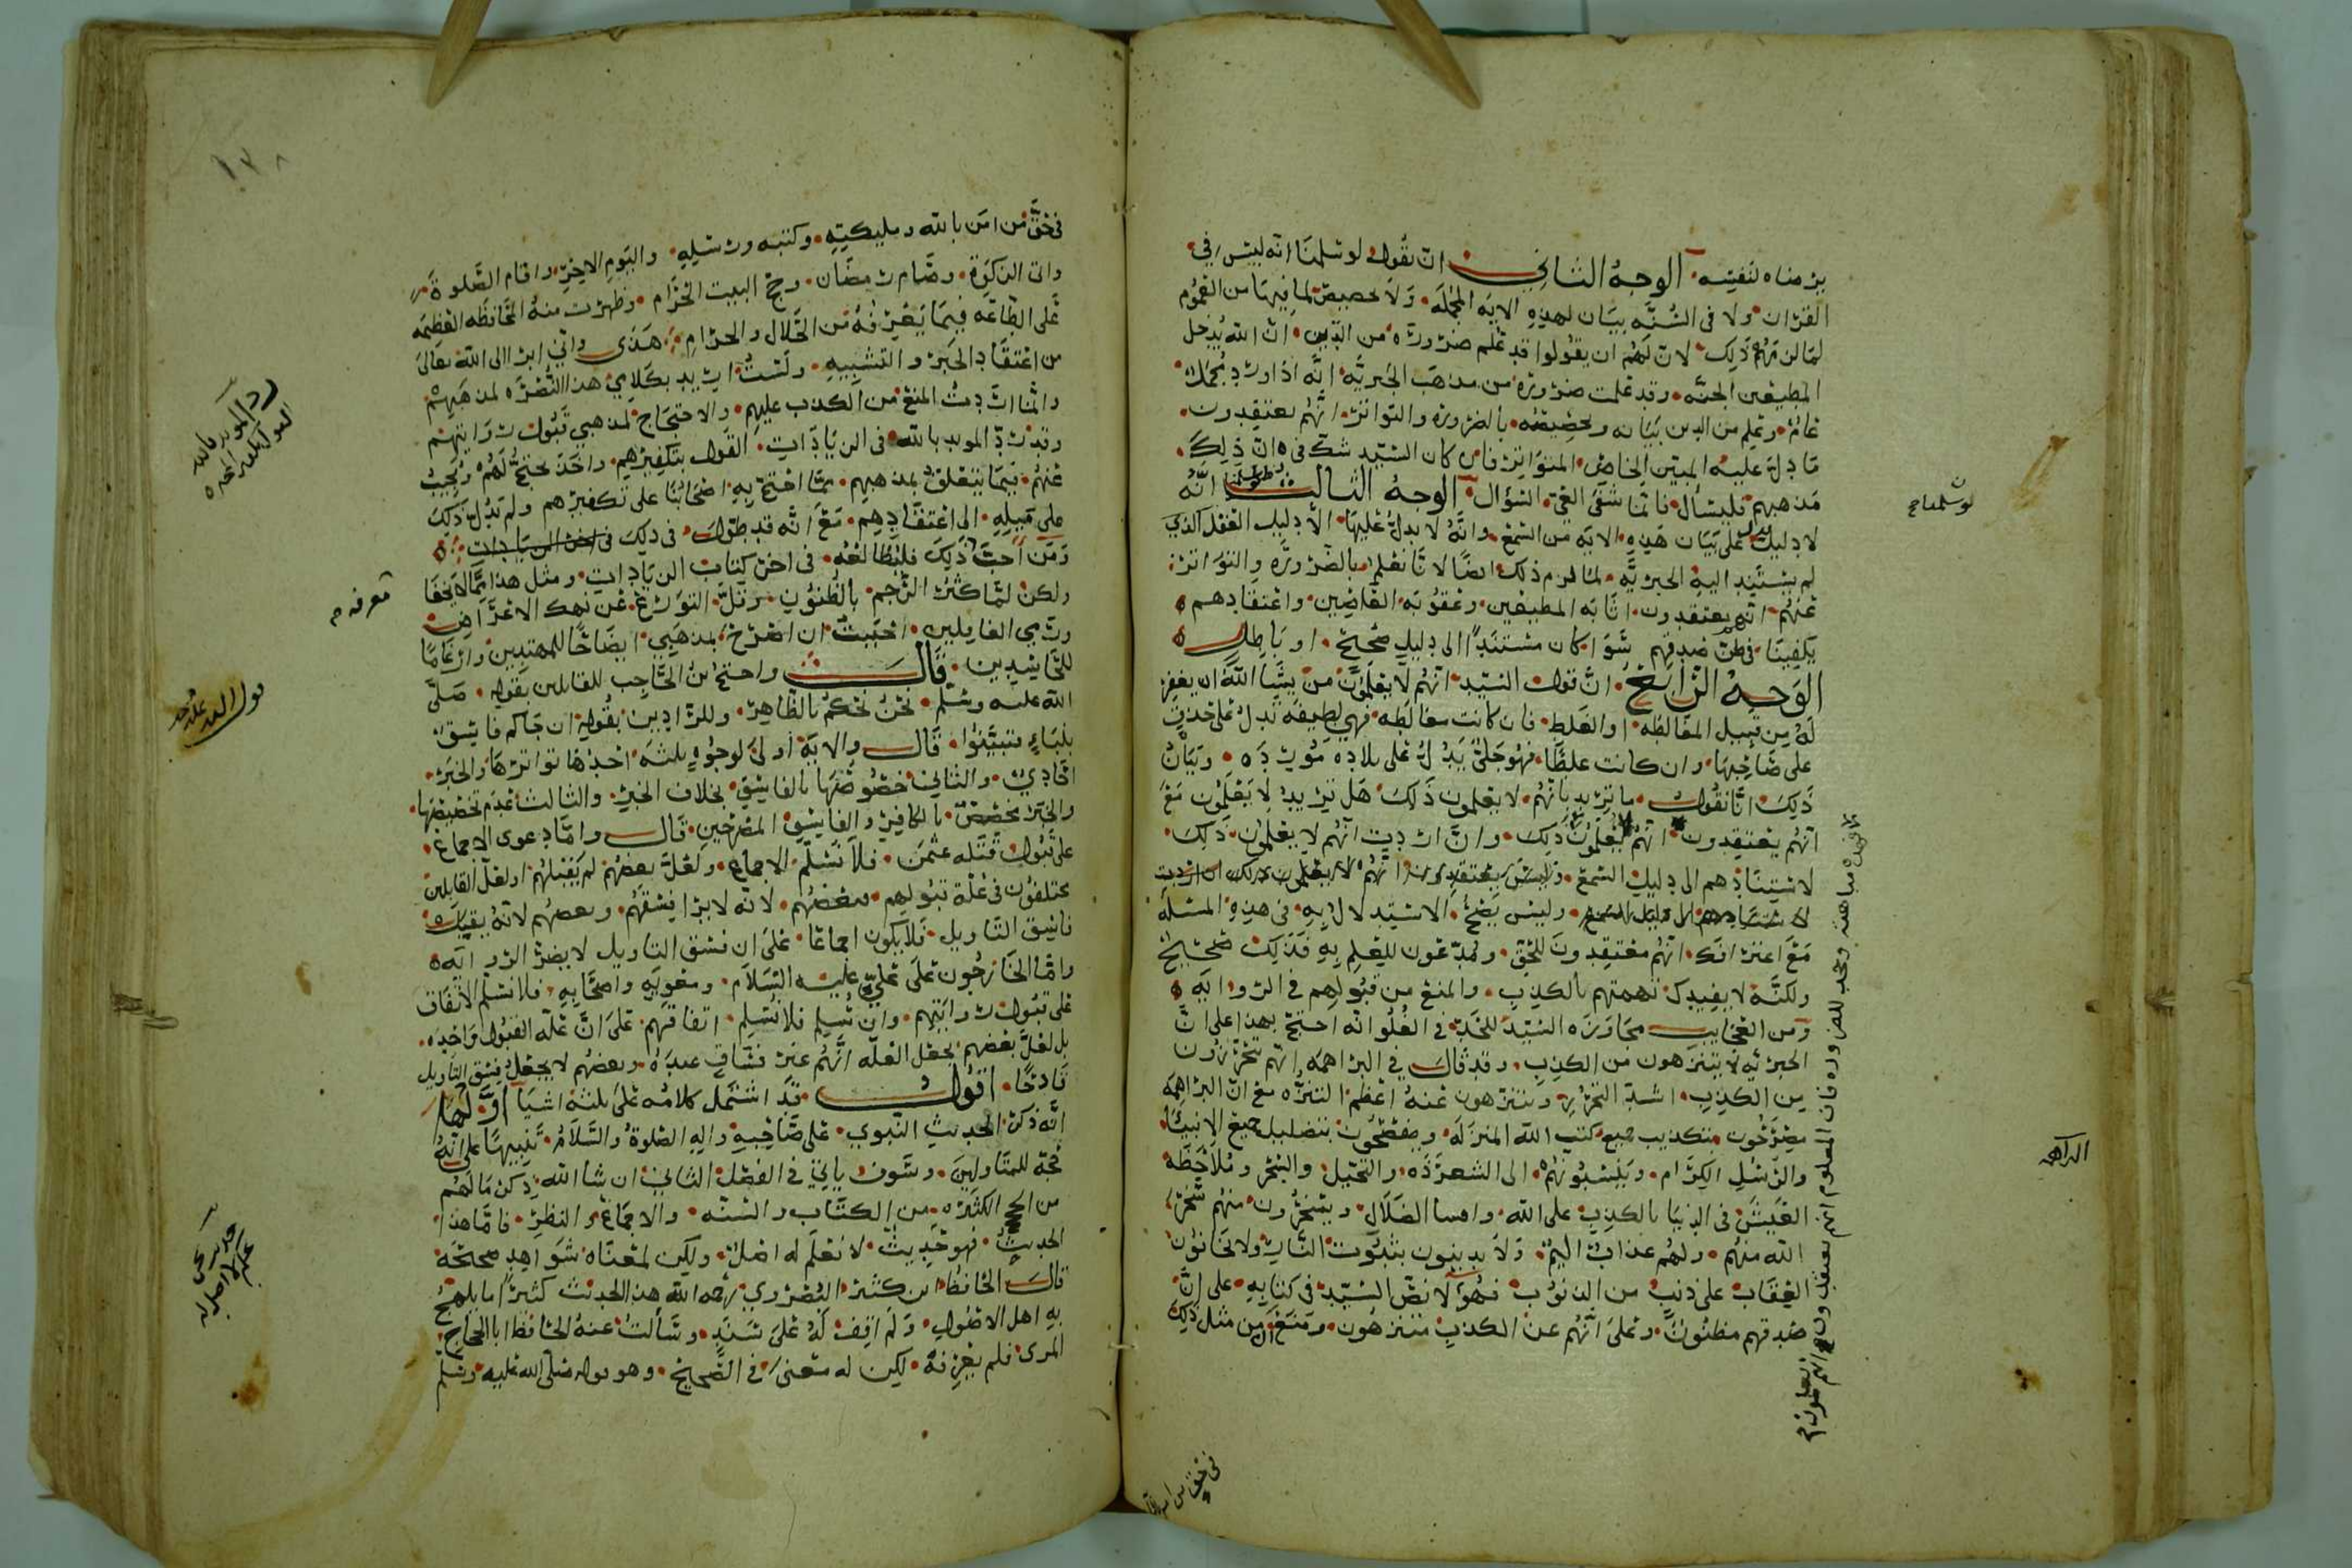 يرضاه لنفسه الوجه الثاني ان نقول لو سلمنا انه ليس في
القران ولا في السنه بيان لهذه الايه المجمله ولا تخصيص لما فيها من العموم
لما لزمهم ذلك لان لهم ان يقولوا قد علم ضرورة من الدين ان الله يدخل
المطيعين الجنه وقد علمت ضروره من مذهب الجبريه انه اذا ورد مجمل
عام وعلم من الدين بيانه وتخصيصه بالضروره والتواتر انهم يعتقدون
ما دل عليه المبين الخاص المتواتر فان كان السيد شك في ان ذلك
مذهبهم فليسال فانما شفى العي السؤال الوجه الثالث انه
لا دليل على بيان هذه الايه من السمع وانه لا يدل عليها الا دليل العقل الذي
لم يستند اليه الجبريه لما لزم ذلك ايضا لانا نعلم بالضروره والتواتر
عنهم انهم يعتقدون اثابه المطيعين وعقوبه العاصين واعتقادهم
يكفينا في ظن صدقهم سوا كان مستندا الى دليل صحيح او باطل
الوجه الرابع ان قول السيد انهم لا يعلمون من يشا الله ان يغفر
له من قبيل المغالطه او الغلط فان كانت مغالطه فهي لطيفه تدل على حذق
على صاحبها وان كانت غلطا فهو جلي يدل على بلاده مورده وبيان
ذلك انا نقول ما تريد بانهم لا يعلمون ذلك هل تريد لا يعلمون مع
انهم يعتقدون انهم يعلمون ذلك وان اردت انهم لا يعلمون ذلك
لاستنادهم الى دليل السمع
وليس يصح الاستدلال به في هذه المسئله
مع اعترافك انهم معتقدون للحق ومدعون للعلم به فذلك صحيح
ولكنه لا يفيدك تهمتهم بالكذب والمنع من قبولهم في الروايه
ومن العجايب مجاوزه السيد للحد في الغلو انه احتج بهذا على ان
الجبريه لا يتنزهون من الكذب وقد قال في البراهمه انهم يتحرزون
من الكذب اشد التحرز ويتنزهون عنه اعظم التنزه مع ان البراهمه
مصرحون بتكذيب جميع كتب الله المنزله ويفصحون بتضليل جميع الانبيا
والرسل الكرام وينسبونهم الى الشعوذه والتحيل والسحر وملاحظه
العيش في الدنيا بالكذب على الله وافشا الضلال ويسخرون منهم سخر
الله منهم ولهم عذاب اليم ولا يدينون بثبوت النار ولا يخافون
العقاب على ذنب من الذنوب فهولا نص السيد في كتابه على ان
صدقهم مظنون وعلى انهم عن الكذب متنزهون ومنع من مثل ذلك
لو سلمنا
البراهمه
في حق من امن بالله
في حق من امن بالله ومليكته وكتبه ورسله واليوم الاخر واقام الصلوة
واتى الزكوة وصام رمضان وحج البيت الحرام وظهرت منه المحافظه العظيمه
على الطاعه فيما يعرفه من الحلال والحرام هذى واني ابرا الى الله تعالى
من اعتقاد الجبر والتشبيه ولست اريد بكلامي هذا النصره لمذهبهم
وانما اردت المنع من الكذب عليهم والاحتجاج لمذهبي قبول روايتهم
وقد رد المويد بالله في الزيادات القول بتكفيرهم واخذ يحتج لهم ويجيب
عنهم فيما يتعلق بمذهبهم مما احتج به اصحابنا على تكفيرهم ولم يدل ذلك
على ميله الى اعتقادهم مع انه قد طول في ذلك في اخر الزيادات
ومن احب ذلك فليطالعه في اخر كتاب الزيادات ومثل هذا مما لا يخفا
ولكن لما كثر الترجم بالظنون وقل التورع عن نهك الاعراض
ورمي الغافلين احببت ان اصرح بمذهبي ايضاحا للمهتدين وارغاما
للحاسدين قال واحتج بن الحاجب للقابلين بقوله صلى
الله عليه وسلم نحن نحكم بالظاهر وللرادين بقوله ان جاكم فاسق
بنباء فتبينوا قال والايه اولى لوجوه ثلثه احدها تواترها والخبر
احادي والثاني خصوصها بالفاسق بخلاف الخبر والثالث عدم تخصيصها
والخبر مخصص بالكافر والفاسق المصرحين قال واما دعوى الاجماع
على قبول قتله عثمن فلا نسلم الاجماع ولعل بعضهم لم يقبلهم او لعل القابلين
مختلفون في علة قبولهم فبعضهم لانه لا يرا فسقهم وبعضهم لانه يقبل
فاسق التاويل فلا يكون اجماعا على ان فسق التاويل لا يضر الروايه
واما الخارجون على علي عليه السلام ومعويه واصحابه فلا نسلم الاتفاق
على قبول روايتهم وان نسلم فلا نسلم اتفاقهم على ان علة القبول واحده
بل لعل بعضهم يجعل العله انهم غير فساق عنده وبعضهم لا يجعل فسق التاويل
قادحا اقول قد اشتمل كلامه على ثلثه اشيا اولها
انه ذكر الحديث النبوي على صاحبه واله الصلوة والسلام تنبيها على انه
حجة للمتاولين وسوف ياتي في الفصل الثاني ان شا الله ذكر ما لهم
من الحجج الكثيره من الكتاب والسنه والاجماع والنظر فاما هذا
الحديث فهو حديث لا نعلم له اصلا ولكن لمعناه شواهد صحيحه
قال الحافظ ابن كثير البصروي رحمه الله هذا الحديث كثيرا ما يلهج
به اهل الاصول ولم اقف له على سند وسالت عنه الحافظ ابا الحجاج
المزى فلم يعرفه لكن له معنى في الصحيح وهو قوله صلى الله عليه وسلم